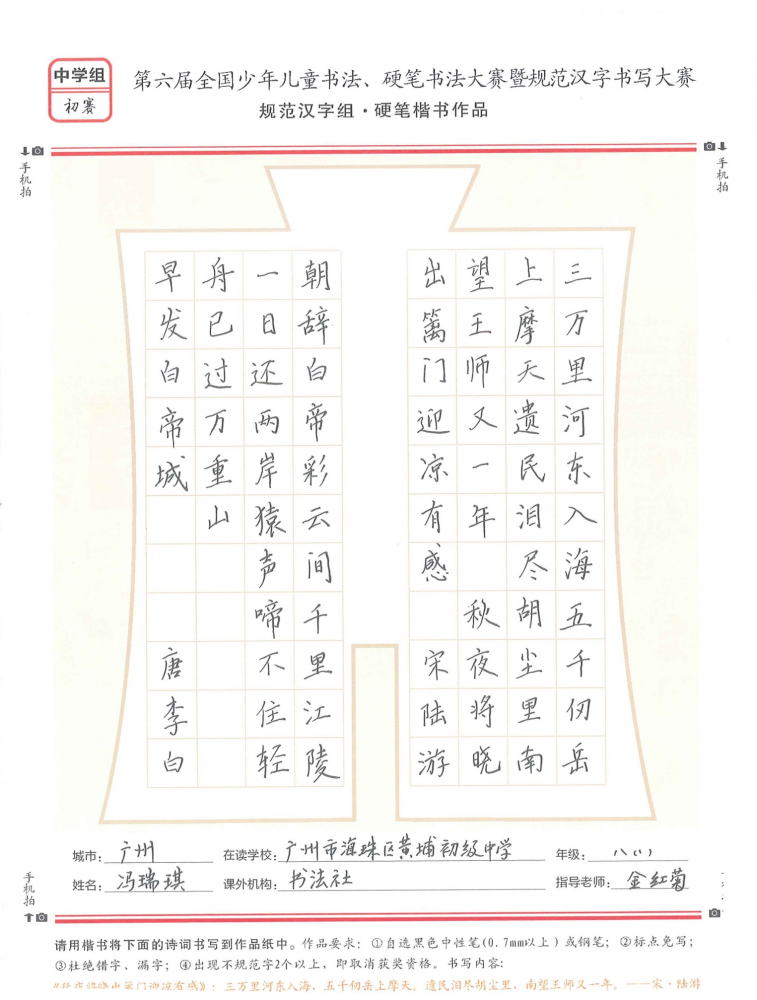 中学组
初赛
第六届全国少年儿童书法、硬笔书法大赛暨规范汉字书写大赛
规范汉字组·硬笔楷书作品
手机拍
手机拍
三万里河东入海五千仞岳
上摩天遗民泪尽胡尘里南
望王师又一年 秋夜将晓
出篱门迎凉有感 宋陆游
朝辞白帝彩云间千里江陵
一日还两岸猿声啼不住轻
舟已过万重山
早发白帝城 唐李白
城市：广州 在读学校：广州市海珠区黄埔初级中学 年级：八(1)
姓名：冯瑞琪 课外机构：书法社 指导老师：金红菊
手机拍
请用楷书将下面的诗词书写到作品纸中。作品要求：①自选黑色中性笔(0.7mm以上)或钢笔；②标点免写；
③杜绝错字、漏字；④出现不规范字2个以上，即取消获奖资格。书写内容：
《秋夜将晓出篱门迎凉有感》：三万里河东入海，五千仞岳上摩天。遗民泪尽胡尘里，南望王师又一年。——宋·陆游